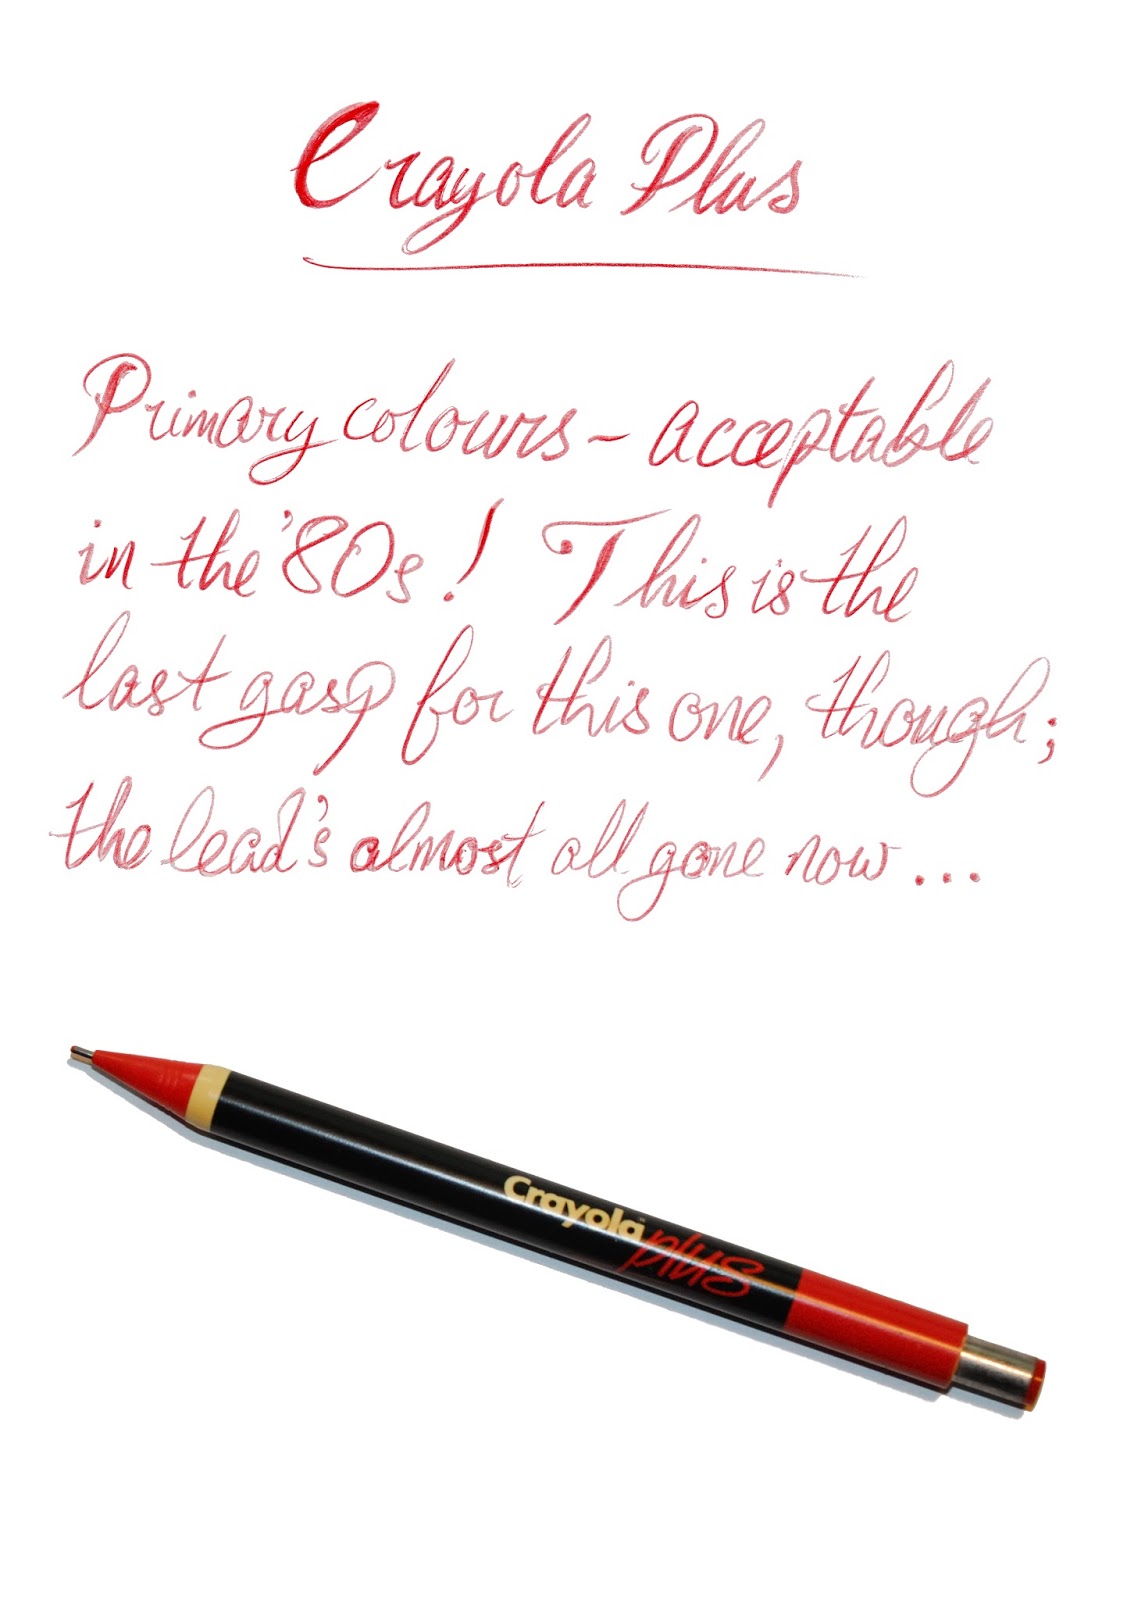 Crayola Plus
Primary colours – acceptable
in the '80s! This is the
last gasp for this one, though;
the lead's almost all gone now...
Crayola plus